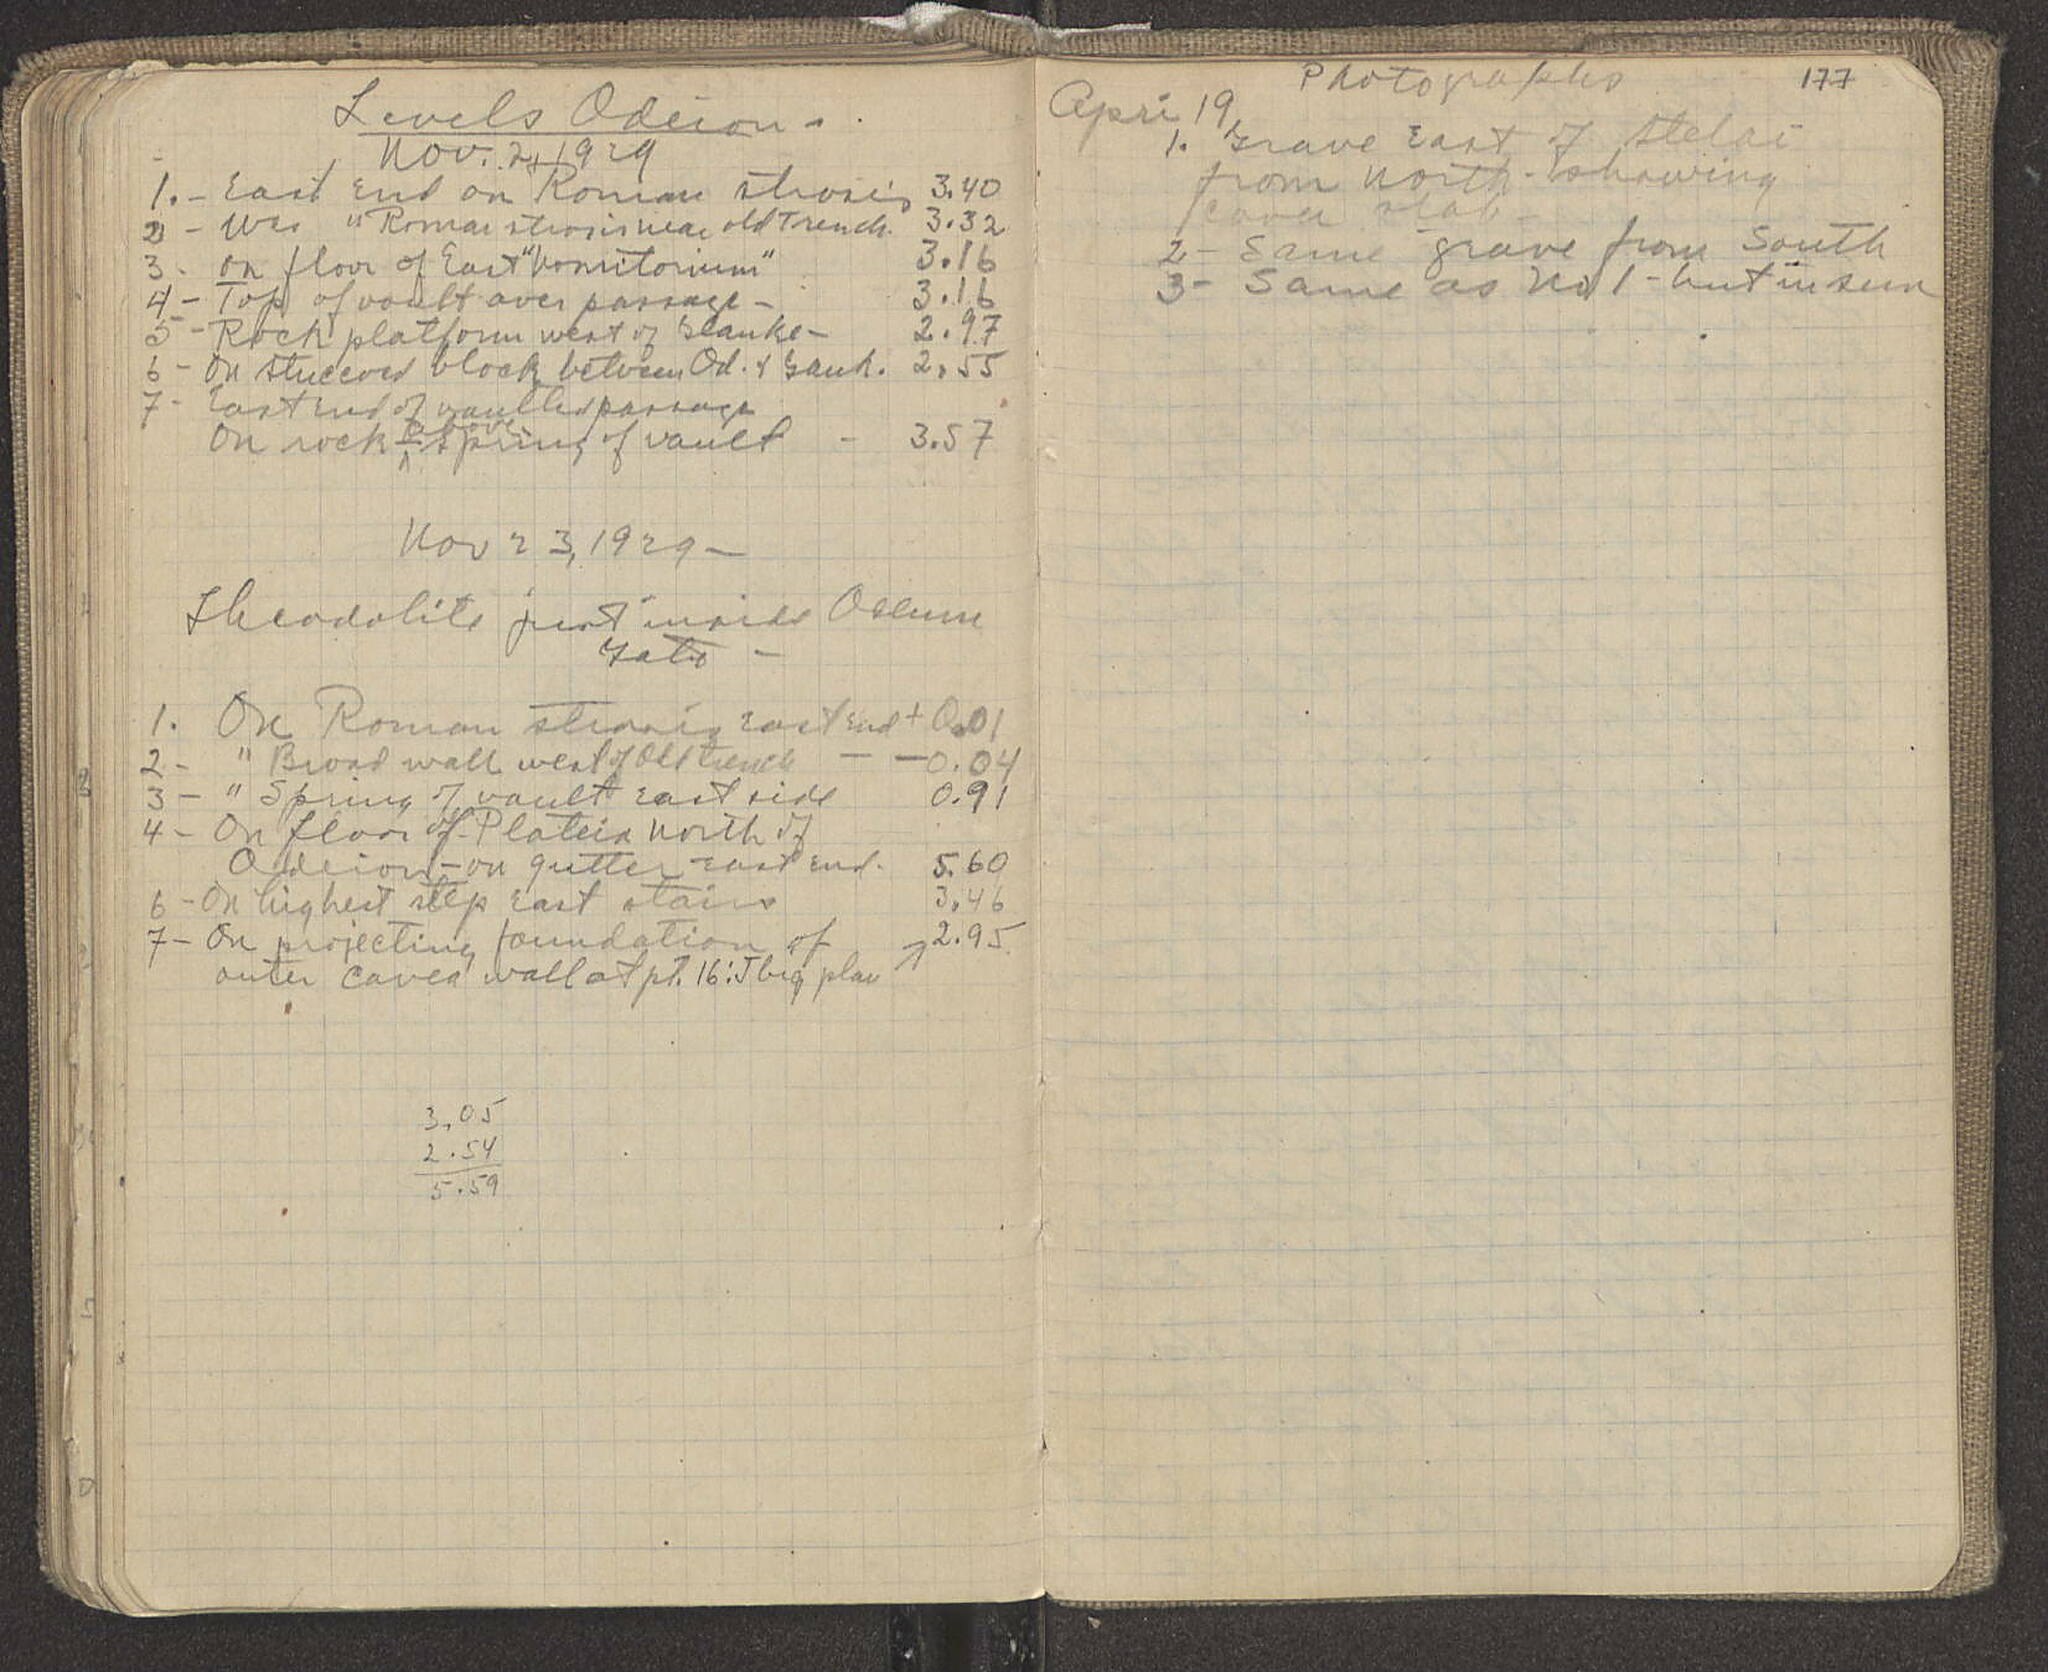 Levels Odeion -
Nov. 21, 1929
1. - East End on Roman strosis 3.40
2 - Wes " Roman strosis near old Trench. 3.32
3 - on floor of East "Vomitorium" 3.16
4 - Top of vault over passage - 3.16
5 - Rock platform west of Glauke - 2.97
6 - On stuccoed block between Od. & Glauk. 2.55
7 - East end of vaulted passage
On rock above spring of vault - 3.57
Nov 23, 1929 -
Theodolite just inside
Gate -
1. On Roman strosis East End + 0.01
2 - " Broad wall west of Old trench - - 0.04
3 - " Spring of vault east side 0.91
4 - On floor of Plateia North of
Odeion - on gutter east end. 5.60
6 - On highest step East stairs 3.46
7 - On projecting foundation of 2.95
outer cavea wall at pt. 16:J big plan
3.05
2.54
5.59
Photographs 177
Apri 19
1. Grave East of Stelai
from North - showing
cover slab -
2 - Same grave from South
3 - Same as No 1 - but in sun